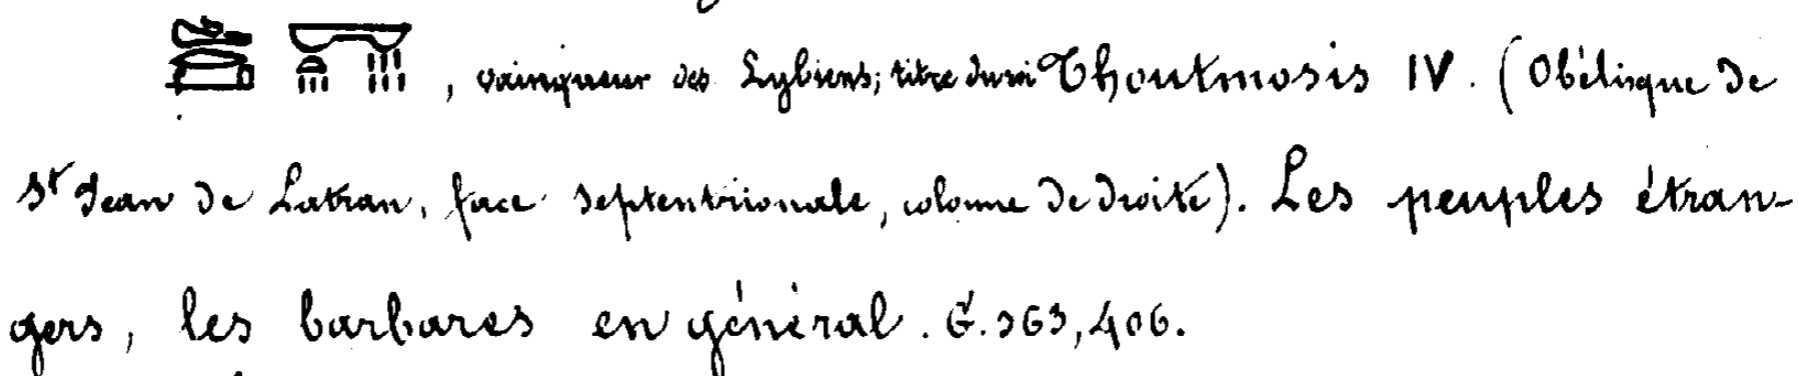 , vainqueur des Lybiens; titre du roi Thoutmosis IV. (Obélisque de
St Jean de Latran, face septentrionale, colonne de droite). Les peuples étran-
gers, les barbares en général. G. 363, 406.